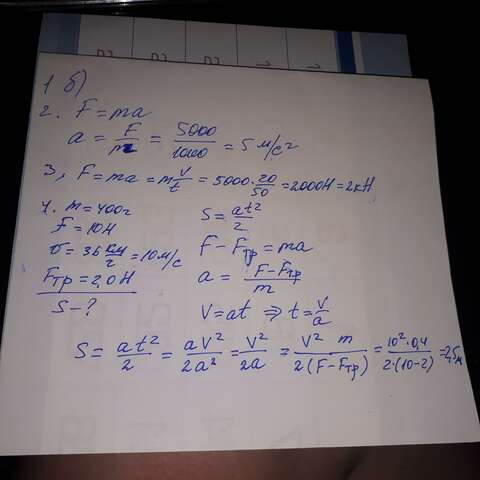 1 б)
2. F = ma
a = F/m = 5000/1000 = 5 м/с²
3. F = ma = m v/t = 5000·20/50 = 2000Н = 2кН
4. m = 400г
F = 10Н
υ = 36 км/г = 10м/с
Fтр = 2,0Н
S - ?
S = at²/2
F - Fтр = ma
a = F-Fтр/m
V = at ⇒ t = V/a
S = at²/2 = av²/2a² = v²/2a = v² m/2(F-Fтр) = 10²·0,4/2·(10-2) = 2,5м